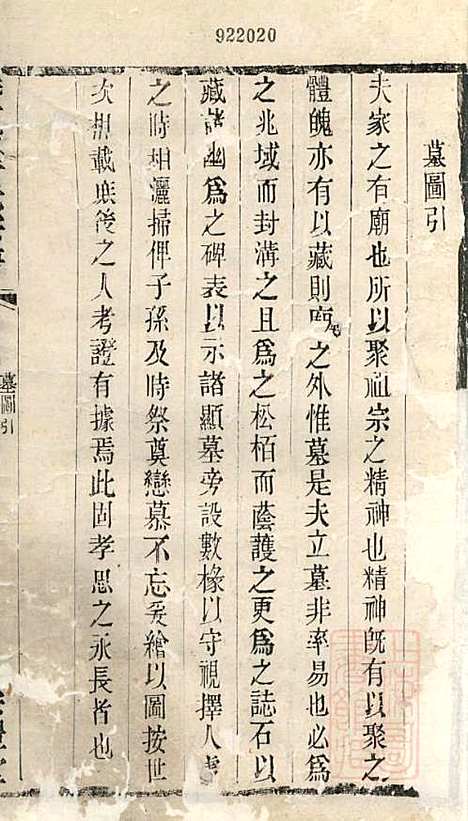 922020
墓圖引
夫家之有廟也所以聚祖宗之精神也精神旣有以聚之
體魄亦有以藏則廟之外惟墓是夫立墓非率易也必為
之兆域而封溝之且為之松栢而蔭護之更為之誌石以
藏諸幽為之碑表以示諸顯墓旁設數椽以守視擇人
之時相灑掃俾子孫及時祭奠戀慕不忘爰繪以圖按世
次相載庶後之人考證有據焉此固孝思之永長者也
墓圖引